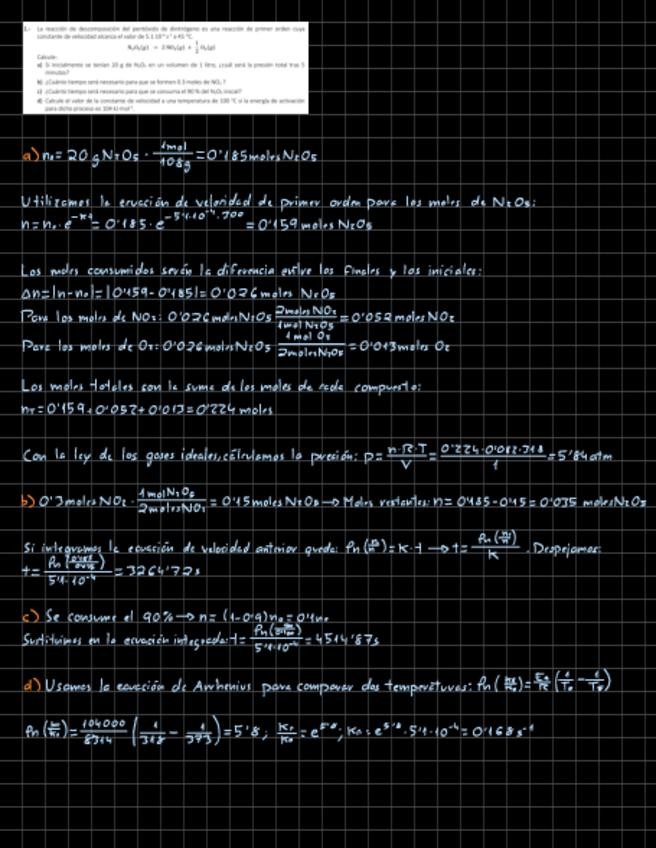 1.- La reacción de descomposición del pentóxido de dinitrógeno es una reacción de primer orden cuya
constante de velocidad alcanza el valor de 5.1 10⁻⁴ s⁻¹ a 45 °C.
N₂O₅(g) → 2 NO₂(g) + 1/2 O₂(g)
Calcule:
a) Si inicialmente se tenían 20 g de N₂O₅ en un volumen de 1 litro, ¿cuál será la presión total tras 5
minutos?
b) ¿Cuánto tiempo será necesario para que se formen 0.3 moles de NO₂?
c) ¿Cuánto tiempo será necesario para que se consuma el 90 % del N₂O₅ inicial?
d) Calcule el valor de la constante de velocidad a una temperatura de 100 °C si la energía de activación
para dicho proceso es 104 kJ·mol⁻¹.
a) n₀= 20 g N₂O₅ · 1mol/108g = 0'185 moles N₂O₅
Utilizamos la ecuación de velocidad de primer orden para los moles de N₂O₅:
n= n₀·e^(-Kt) = 0'185·e^(-5'1·10⁻⁴·300) = 0'159 moles N₂O₅
Los moles consumidos serán la diferencia entre los finales y los iniciales:
Δn=|n-n₀|=|0'159-0'185|= 0'026 moles N₂O₅
Para los moles de NO₂: 0'026 moles N₂O₅ 2moles NO₂/1mol N₂O₅ = 0'052 moles NO₂
Para los moles de O₂: 0'026 moles N₂O₅ 1 mol O₂/2moles N₂O₅ = 0'013 moles O₂
Los moles totales son la suma de los moles de cada compuesto:
nT= 0'159+0'052+0'013=0'224 moles
Con la ley de los gases ideales, calculamos la presión: P= n·R·T/V = 0'224·0'082·318/1 = 5'84 atm
b) 0'3 moles NO₂ · 1mol N₂O₅/2moles NO₂ = 0'15 moles N₂O₅ → Moles restantes: n= 0'185-0'15= 0'035 moles N₂O₅
Si integramos la ecuación de velocidad anterior queda: ln(n₀/n)=K·t → t= ln(n₀/n)/K . Despejamos:
t= ln(0'185/0'035)/5'1·10⁻⁴ = 3264'72s
c) Se consume el 90% → n= (1-0'9)n₀= 0'1n₀
Sustituimos en la ecuación integrada: t= ln(n₀/0'1n₀)/5'1·10⁻⁴ = 4514'87s
d) Usamos la ecuación de Arrhenius para comparar dos temperaturas: